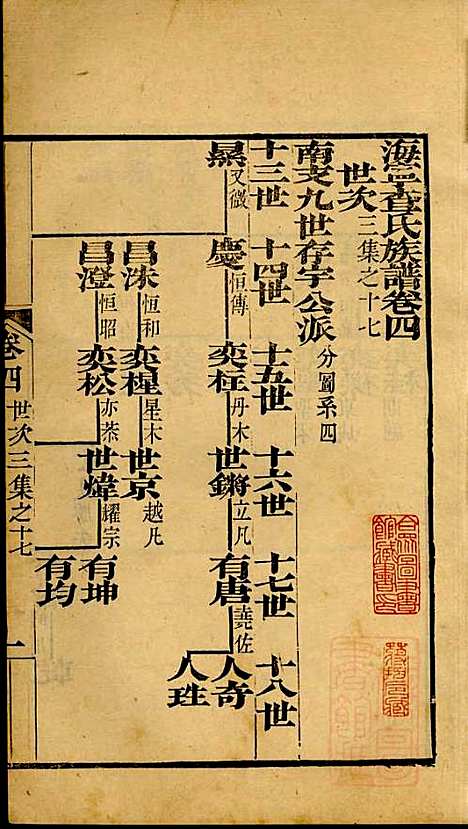 海寧查氏族譜卷四
世次三集之十七
南支九世存宇公派 分圖系四
十三世 十四世 十五世 十六世 十七世 十八世
慶 恒傳 奕枉 丹木 世鏘 立凡 有唐 堯佐 人奇
人珄
又微
昌洙 恒和 奕楻 星木 世京 越凡
昌澄 恒昭 奕松 亦荼 世煒 耀宗 有坤
有均
卷四 世次三集之十七 一
合眾圖書館藏書印